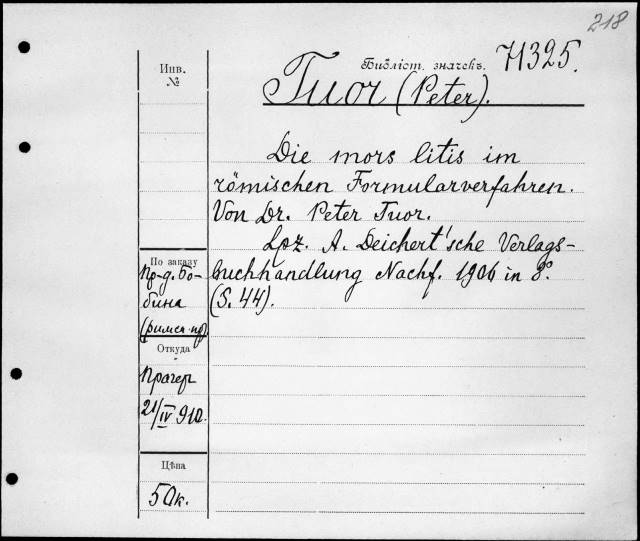 218
Инв.
№
Библіот. значекъ.
71325.
Tuor (Peter).
Die mors litis im
römischen Formularverfahren.
Von Dr. Peter Tuor.
Lpz. A. Deichert'sche Verlags-
buchhandlung Nachf. 1906 in 8º.
(S. 44).
По заказу
Пр-д. Бо-
бина
(римск. пр).
Откуда
Прагер
21/IV 910.
Цѣна
50к.